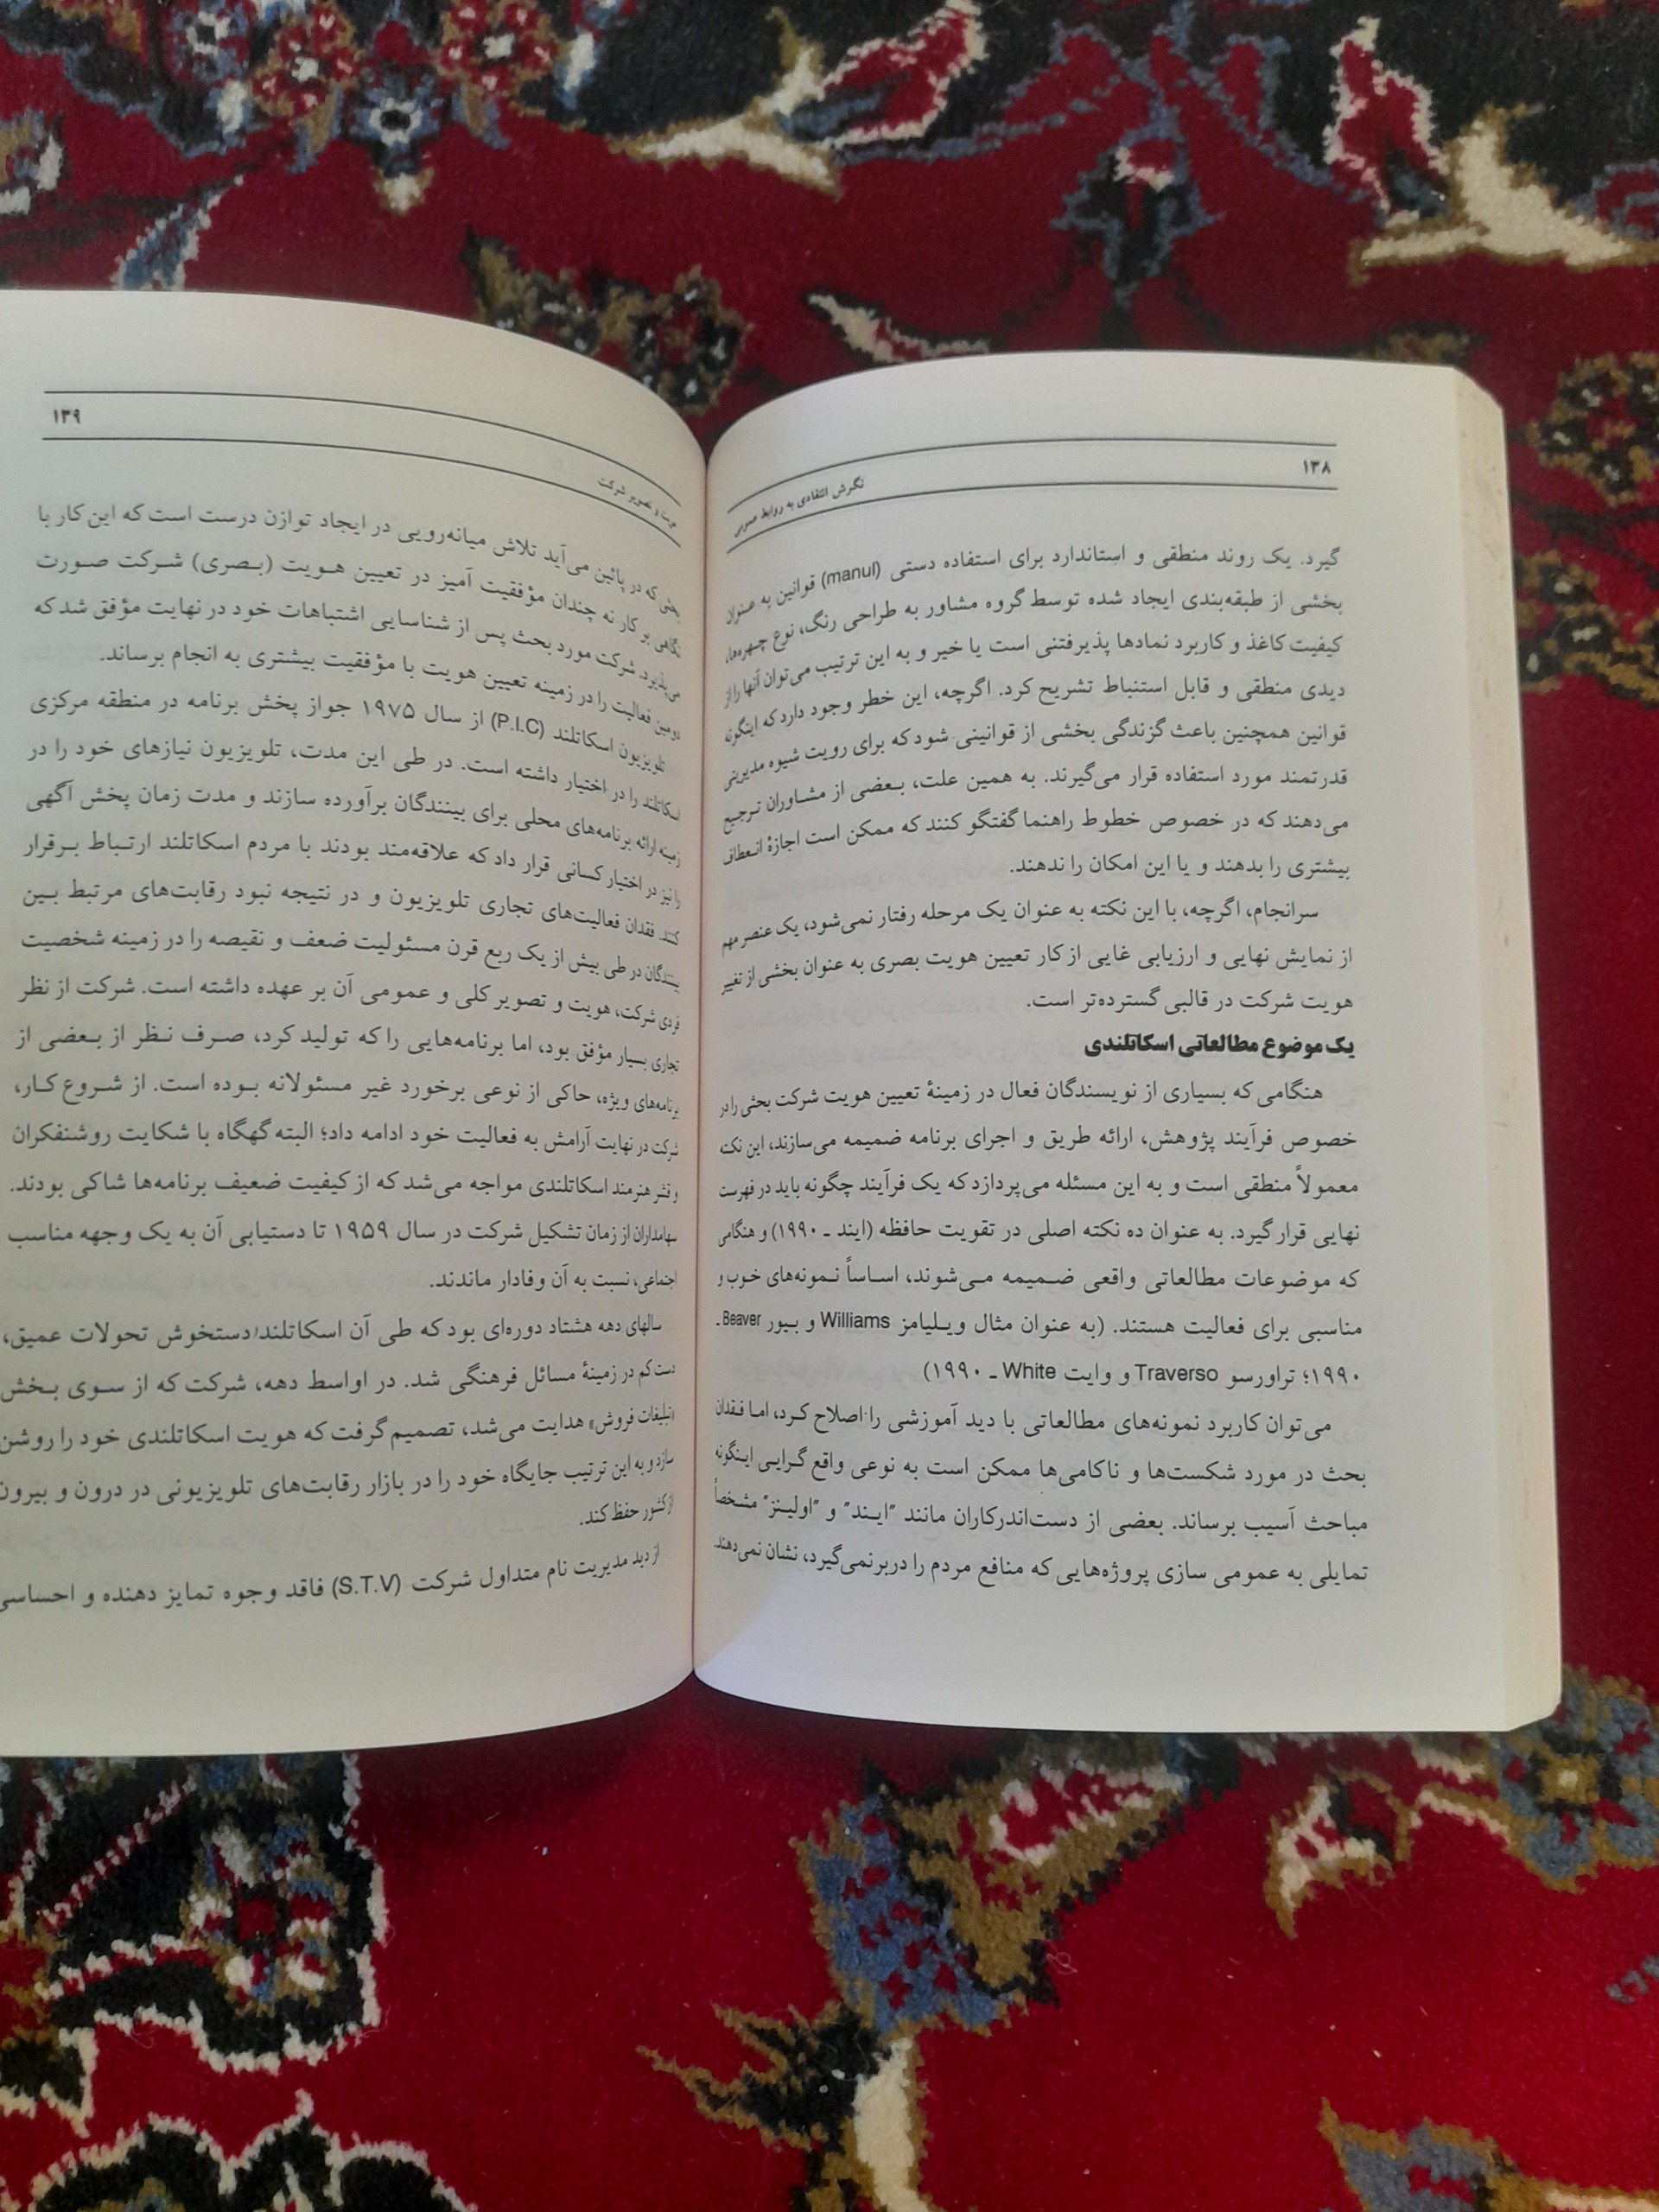 ۱۳۸
نگرش انتقادی به روابط عمومی
گیرد. یک روند منطقی و استاندارد برای استفاده دستی (manul) قوانین به عنوان
بخشی از طبقه‌بندی ایجاد شده توسط گروه مشاور به طراحی رنگ، نوع چهره‌ها،
کیفیت کاغذ و کاربرد نمادها پذیرفتنی است یا خیر و به این ترتیب می‌توان آنها را از
دیدی منطقی و قابل استنباط تشریح کرد. اگرچه، این خطر وجود دارد که اینگونه
قوانین همچنین باعث گزندگی بخشی از قوانینی شود که برای رویت شیوه مدیریتی
قدرتمند مورد استفاده قرار می‌گیرند. به همین علت، بعضی از مشاوران ترجیح
می‌دهند که در خصوص خطوط راهنما گفتگو کنند که ممکن است اجازهٔ انعطاف
بیشتری را بدهند و یا این امکان را ندهند.
سرانجام، اگرچه، با این نکته به عنوان یک مرحله رفتار نمی‌شود، یک عنصر مهم
از نمایش نهایی و ارزیابی غایی از کار تعیین هویت بصری به عنوان بخشی از تغییر
هویت شرکت در قالبی گسترده‌تر است.
یک موضوع مطالعاتی اسکاتلندی
هنگامی که بسیاری از نویسندگان فعال در زمینهٔ تعیین هویت شرکت بحثی را در
خصوص فرآیند پژوهش، ارائه طریق و اجرای برنامه ضمیمه می‌سازند، این نکته
معمولاً منطقی است و به این مسئله می‌پردازد که یک فرآیند چگونه باید در فهرست
نهایی قرار گیرد. به عنوان ده نکته اصلی در تقویت حافظه (ایند ـ ۱۹۹۰) و هنگامی
که موضوعات مطالعاتی واقعی ضمیمه می‌شوند، اساساً نمونه‌های خوب و
مناسبی برای فعالیت هستند. (به عنوان مثال ویلیامز Williams و بیور Beaver ـ
۱۹۹۰؛ تراورسو Traverso و وایت White ـ ۱۹۹۰)
می‌توان کاربرد نمونه‌های مطالعاتی با دید آموزشی را اصلاح کرد، اما فقدان
بحث در مورد شکست‌ها و ناکامی‌ها ممکن است به نوعی واقع گرایی اینگونه
مباحث آسیب برساند. بعضی از دست‌اندرکاران مانند "ایند" و "اولینز" مشخصاً
تمایلی به عمومی سازی پروژه‌هایی که منافع مردم را دربرنمی‌گیرد، نشان نمی‌دهند.
۱۳۹
هویت و تصویر شرکت
بحثی که در پائین می‌آید تلاش میانه‌رویی در ایجاد توازن درست است که این کار با
نگاهی بر کار نه چندان مؤفقیت آمیز در تعیین هویت (بصری) شرکت صورت
می‌پذیرد. شرکت مورد بحث پس از شناسایی اشتباهات خود در نهایت مؤفق شد که
دومین فعالیت را در زمینه تعیین هویت با مؤفقیت بیشتری به انجام برساند.
تلویزیون اسکاتلند (P.I.C) از سال ۱۹۷۵ جواز پخش برنامه در منطقه مرکزی
اسکاتلند را در اختیار داشته است. در طی این مدت، تلویزیون نیازهای خود را در
زمینه ارائه برنامه‌های محلی برای بینندگان برآورده سازند و مدت زمان پخش آگهی
را نیز در اختیار کسانی قرار داد که علاقه‌مند بودند با مردم اسکاتلند ارتباط برقرار
کنند. فقدان فعالیت‌های تجاری تلویزیون و در نتیجه نبود رقابت‌های مرتبط بین
بینندگان در طی بیش از یک ربع قرن مسئولیت ضعف و نقیصه را در زمینه شخصیت
فردی شرکت، هویت و تصویر کلی و عمومی آن بر عهده داشته است. شرکت از نظر
تجاری بسیار مؤفق بود، اما برنامه‌هایی را که تولید کرد، صرف نظر از بعضی از
برنامه‌های ویژه، حاکی از نوعی برخورد غیر مسئولانه بوده است. از شروع کار،
شرکت در نهایت آرامش به فعالیت خود ادامه داد؛ البته گهگاه با شکایت روشنفکران
و قشر هنرمند اسکاتلندی مواجه می‌شد که از کیفیت ضعیف برنامه‌ها شاکی بودند.
سهامداران از زمان تشکیل شرکت در سال ۱۹۵۹ تا دستیابی آن به یک وجهه مناسب
اجتماعی، نسبت به آن وفادار ماندند.
سالهای دهه هشتاد دوره‌ای بود که طی آن اسکاتلند دستخوش تحولات عمیق،
دست کم در زمینهٔ مسائل فرهنگی شد. در اواسط دهه، شرکت که از سوی بخش
«تبلیغات فروش» هدایت می‌شد، تصمیم گرفت که هویت اسکاتلندی خود را روشن
سازد و به این ترتیب جایگاه خود را در بازار رقابت‌های تلویزیونی در درون و بیرون
از کشور حفظ کند.
از دید مدیریت نام متداول شرکت (S.T.V) فاقد وجوه تمایز دهنده و احساسی